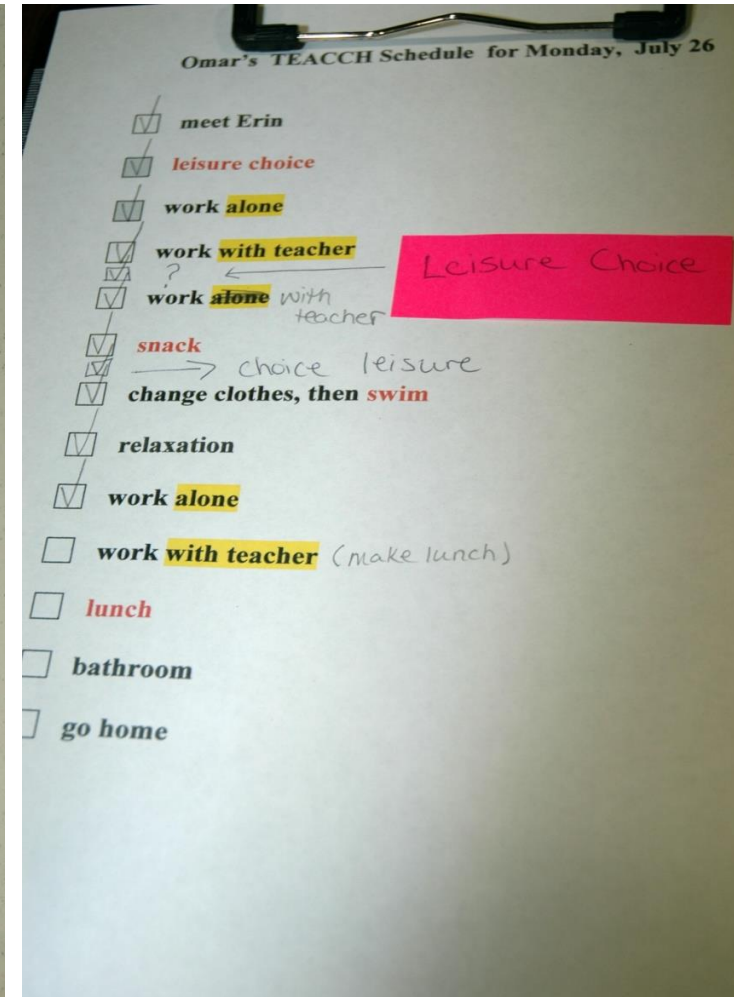 Omar's TEACCH Schedule for Monday, July 26
meet Erin
leisure choice
work alone
work with teacher
? Leisure Choice
work alone with
teacher
snack
choice leisure
change clothes, then swim
relaxation
work alone
work with teacher (make lunch)
lunch
bathroom
go home